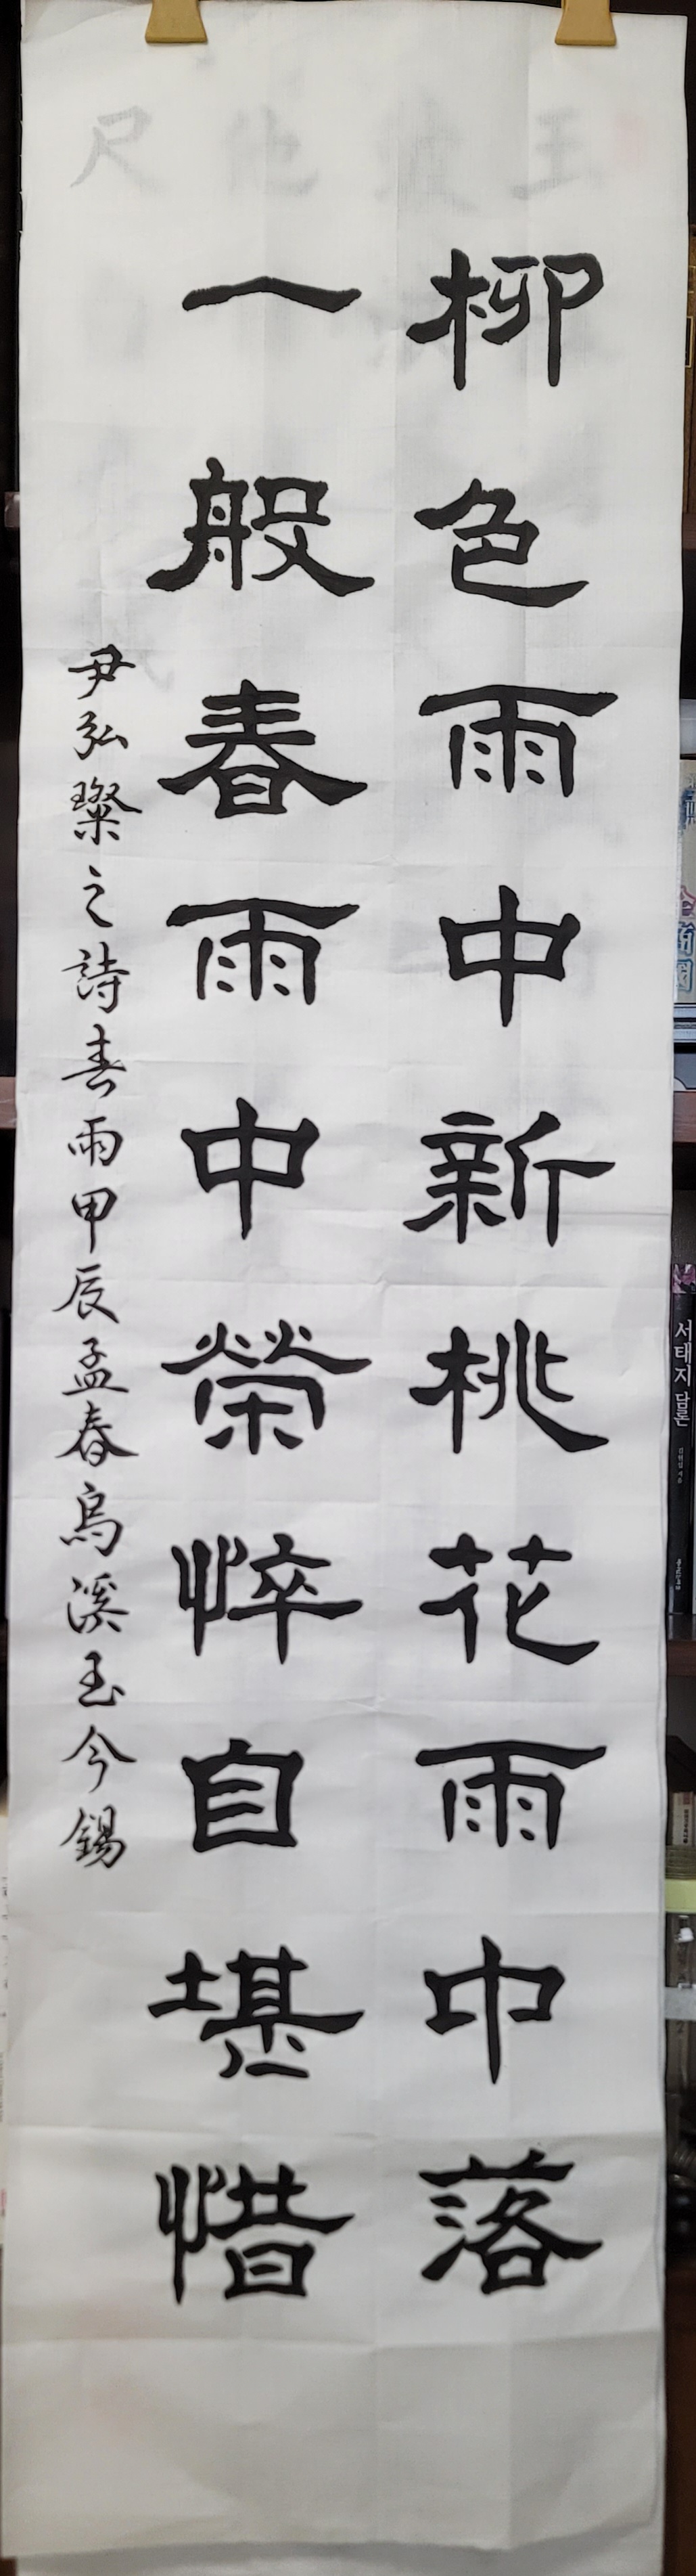 柳色雨中新桃花雨中落
一般春雨中榮悴自堪惜
尹弘璨之詩春雨甲辰孟春烏溪玉今錫
서태지 담론